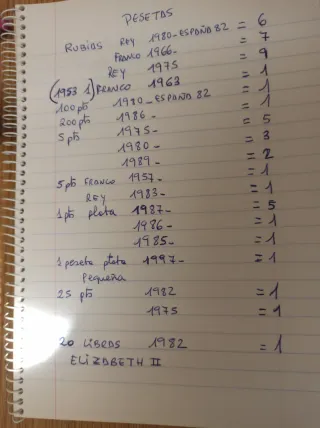 PESETAS
RUBIAS REY 1980-ESPAÑA 82 = 6
FRANCO 1966- = 7
REY 1975 = 9
(1953 1) FRANCO 1963 = 1
100 pts 1980-ESPAÑA 82 = 1
200 pts 1986- = 1
5 pts 1975- = 5
1980- = 3
1989- = 2
5 pts FRANCO 1957- = 1
REY 1983- = 1
1 pts plata 1987- = 5
1986- = 1
1985- = 1
1 peseta plata 1997- = 1
pequeña
25 pts 1982 = 1
1975 = 1
20 LIBRAS 1982 = 1
ELIZABETH II